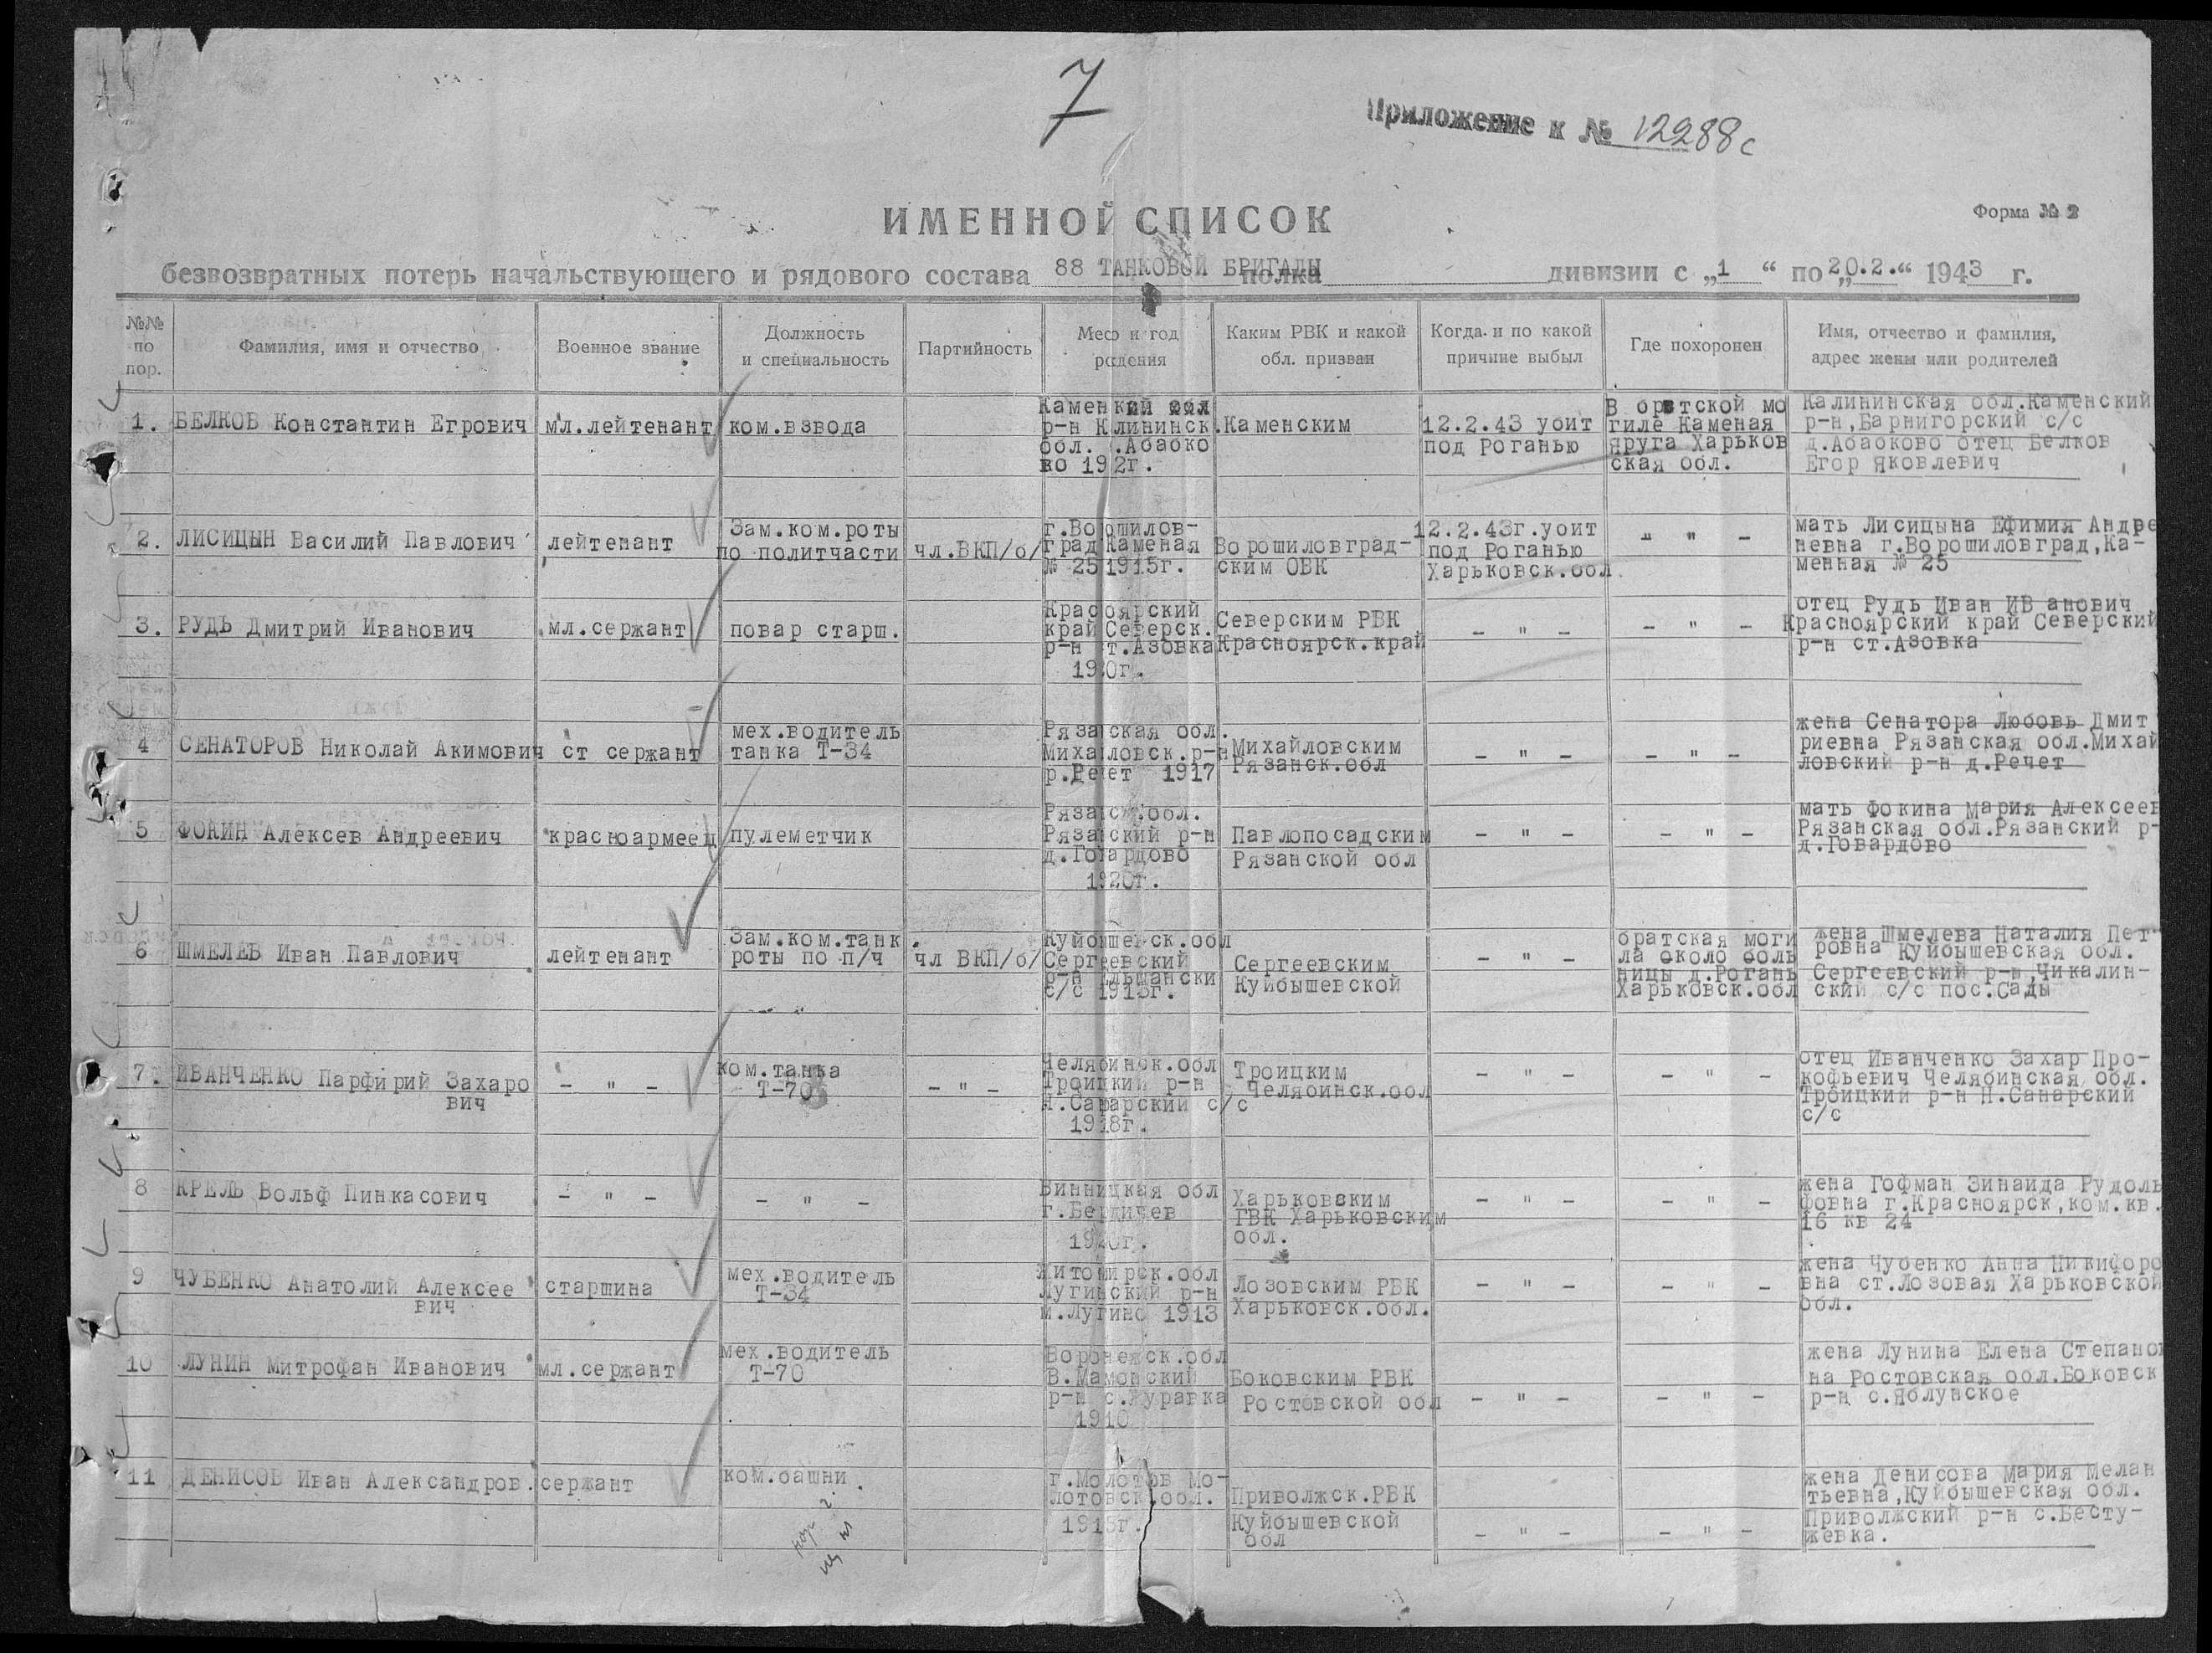 7
Приложение к № 12288с
ИМЕННОЙ СПИСОК
Форма № 2
безвозвратных потерь начальствующего и рядового состава 88 ТАНКОВОЙ БРИГАДЫ полка дивизии с „1 “ по „20.2.“ 1943 г.
№№ по пор.
Фамилия, имя и отчество
Военное звание
Должность и специальность
Партийность
Месо и год родения
Каким РВК и какой обл. призван
Когда и по какой причине выбыл
Где похоронен
Имя, отчество и фамилия, адрес жены или родителей
1. БЕЛКОВ Константин Егрович
мл.лейтенант
ком.взвода
р-н
обл.
Каменским
12.2.43 убит
под Роганью
В братской мо
гиле Каменая
яруга Харьков
ская обл.
Калининская обл.Каменский
р-н,Барнигорский с/с
д.Абабково отец Белков
Егор Яковлевич
2. ЛИСИЦЫН Василий Павлович
лейтенант
Зам.ком.роты
по политчасти
чл.ВКП/б/
г.Ворошилов-
град Каменая
№ 25 1915г.
Ворошиловград-
ским ОВК
12.2.43г.убит
под Роганью
Харьковск.обл
- " -
мать Лисицына Ефимия Андре
невна г.Ворошиловград,Ка-
менная № 25
3. РУДЬ Дмитрий Иванович
мл.сержант
повар старш.
край Северск.
Северским РВК
Красноярск.край
- " -
- " -
отец Рудь Иван ИВ анович
Красноярский край Северский
р-н ст.Азовка
4 СЕНАТОРОВ Николай Акимович
ст сержант
мех.водитель
танка Т-34
Рязанская обл.
1917
Михайловским
Рязанск.обл
- " -
- " -
жена Сенатора Любовь Дмит
риевна Рязанская обл.Михай
ловский р-н д.Речет
5 ФОКИН Алексев Андреевич
красноармеец
пулеметчик
Рязанский р-н
1920г.
Павлопосадским
Рязанской обл
- " -
- " -
мать Фокина Мария Алексеев
Рязанская обл.Рязанский р-
д.Говардово
6 ШМЕЛЕВ Иван Павлович
лейтенант
Зам.ком.танк.
роты по п/ч
чл ВКП/б/
Сергеевский
с/с 1913г.
Сергеевским
Куйбышевской
- " -
братская моги
ла около боль
ницы д.Рогань
Харьковск.обл
жена Шмелева Наталия Пет
ровна Куйбышевская обл.
Сергеевский р-н,Чикалин-
ский с/с пос.Сады
7. ИВАНЧЕНКО Парфирий Захаро
вич
- " -
ком.танка
Т-70
- " -
Челябинск.обл
Троицкий р-н
1918г.
Троицким
Челябинск.обл
- " -
- " -
отец Иванченко Захар Про-
кофьевич Челябинская обл.
Троицкий р-н Н.Санарский
с/с
8 КРЕЛЬ Вольф Пинкасович
- " -
- " -
Винницкая обл
г.Бердичев
Харьковским
ГВК Харьковским
обл.
- " -
- " -
жена Гофман Зинаида Рудоль
фовна г.Красноярск,ком.кв.
16 кв 24
9 ЧУБЕНКО Анатолий Алексее
вич
старшина
мех.водитель
Т-34
Житомирск.обл
Лугинский р-н
м.Лугино 1913
Лозовским РВК
Харьковск.обл.
- " -
- " -
жена Чубенко Анна Никифоро
вна ст.Лозовая Харьковской
обл.
10 ЛУНИН Митрофан Иванович
мл.сержант
мех.водитель
Т-70
Воронежск.обл
В.Мамонский
р-н с.Журавка
1910
Боковским РВК
Ростовской обл
- " -
- " -
жена Лунина Елена Степанов
на Ростовская обл.Боковск
р-н с.Яблунское
11 ДЕНИСОВ Иван Александров.
сержант
ком.башни
г.Молотов Мо-
лотовск.обл.
1915г.
Приволжск.РВК
Куйбышевской
обл
- " -
- " -
жена Денисова Мария Мелан
тьевна,Куйбышевская обл.
Приволжский р-н с.Бесту-
жевка.